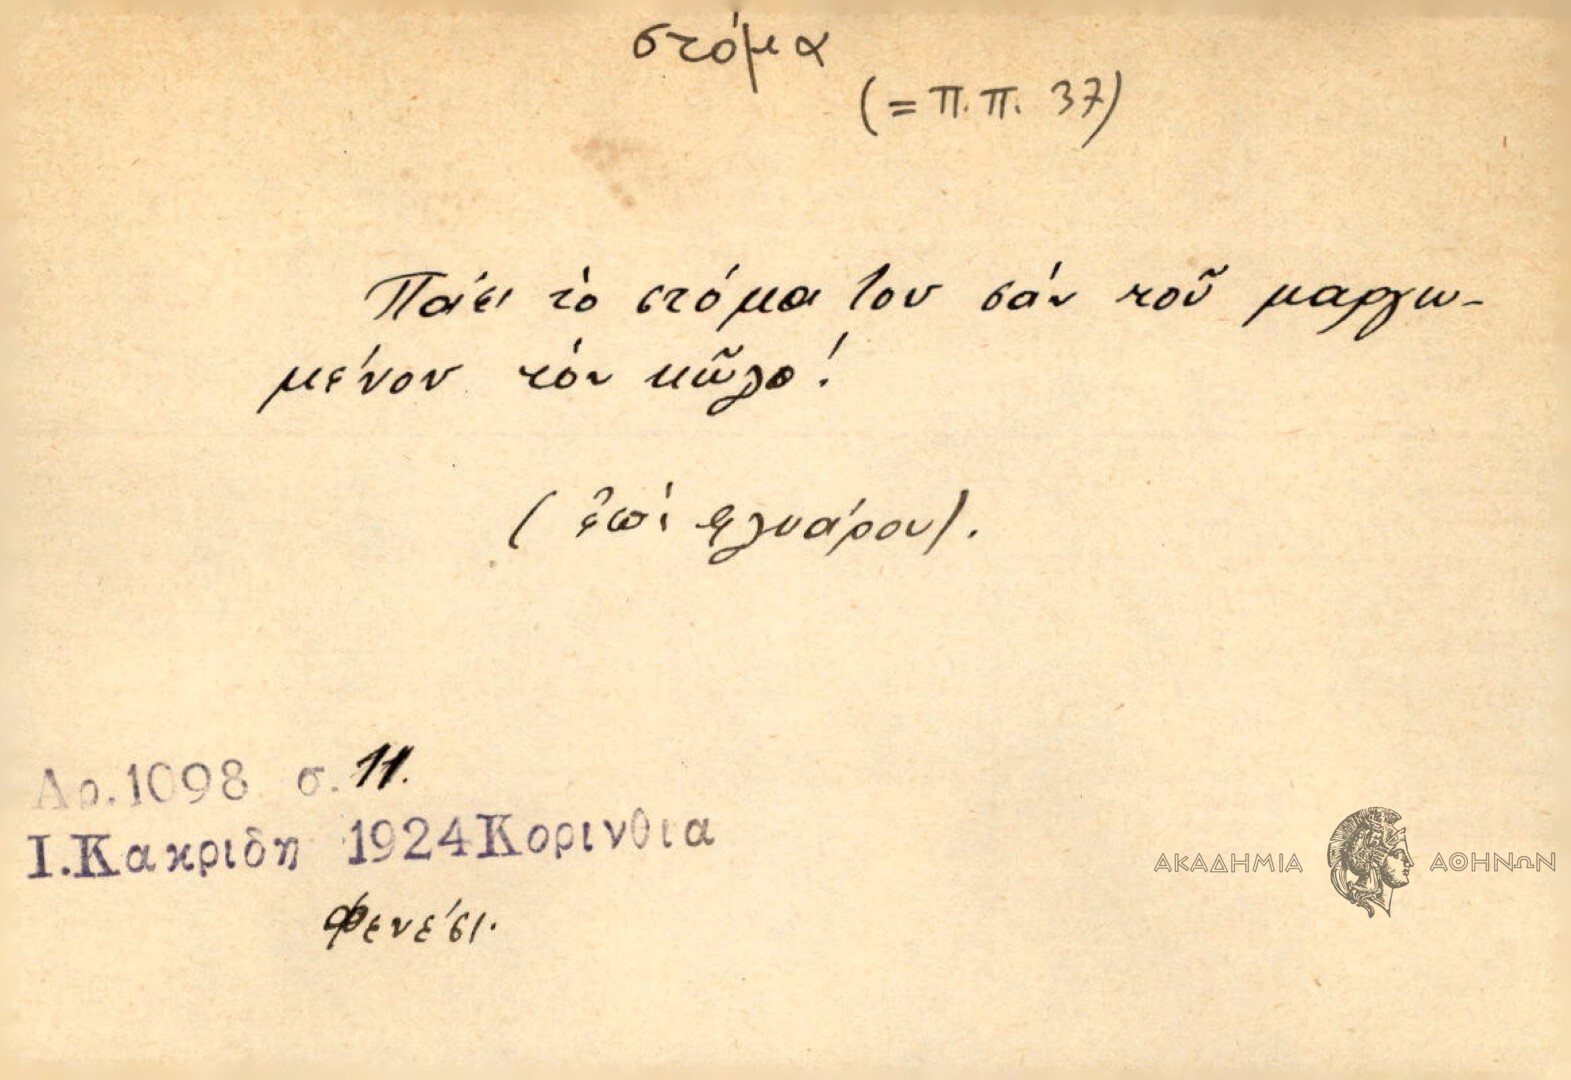 στόμα
(= Π.Π. 37)
Πάει τὸ στόμα του σάν τοῦ μαργω-
μένου τόν κῶλο!
(ἐπί φλυάρου).
Αρ.1098 σ. 11.
Ι.Κακριδη 1924 Κορινθια
Φενέσι.
ΑΚΑΔΗΜΙΑ ΑΘΗΝΩΝ